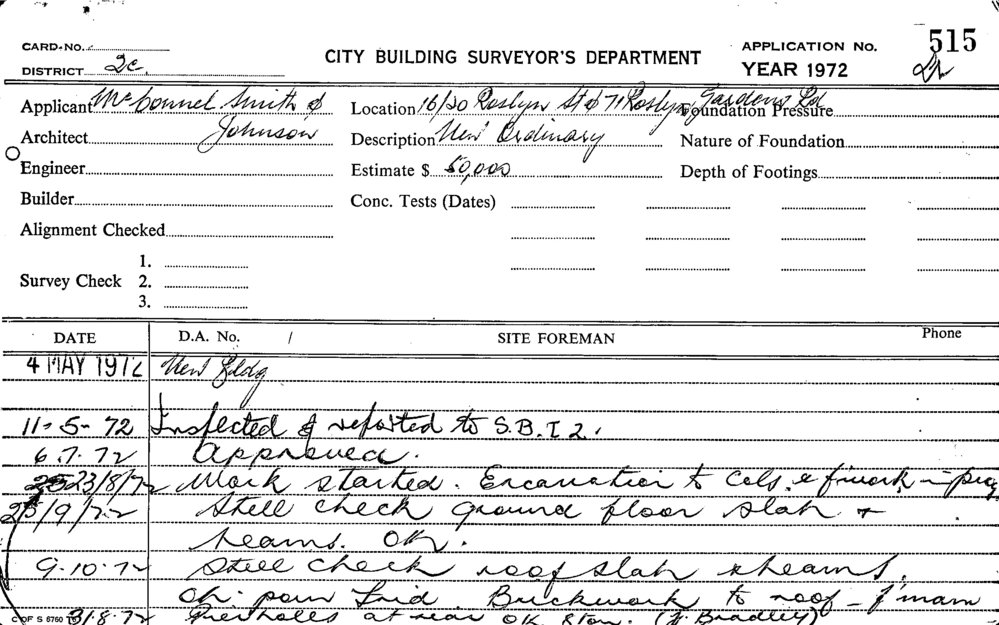 CARD-NO.
CITY BUILDING SURVEYOR'S DEPARTMENT
APPLICATION No. 515
DISTRICT 2c.
YEAR 1972
Applicant McConnel Smith &
Location 16/20 Roslyn St & 71 Roslyn Gardens Rd
Foundation Pressure
Architect Johnson
Description New Ordinary
Nature of Foundation
Engineer
Estimate $ 50,000
Depth of Footings
Builder
Conc. Tests (Dates)
Alignment Checked
1.
Survey Check 2.
3.
DATE D.A. No. / SITE FOREMAN Phone
4 MAY 1972 New Bldg
11-5-72 Inspected & reported to S.B.I 2.
6.7.72 Approved.
23/8/72 Work started. Excavation to Cols. & f'work in prog
25/9/72 Steel check ground floor slab +
beams. OK.
9-10-72 Steel check roof slab & beams.
Ok. pour Brickwork to roof -
C OF S 6760 31.8.72 Pierholes at rear OK (J. Bradley)